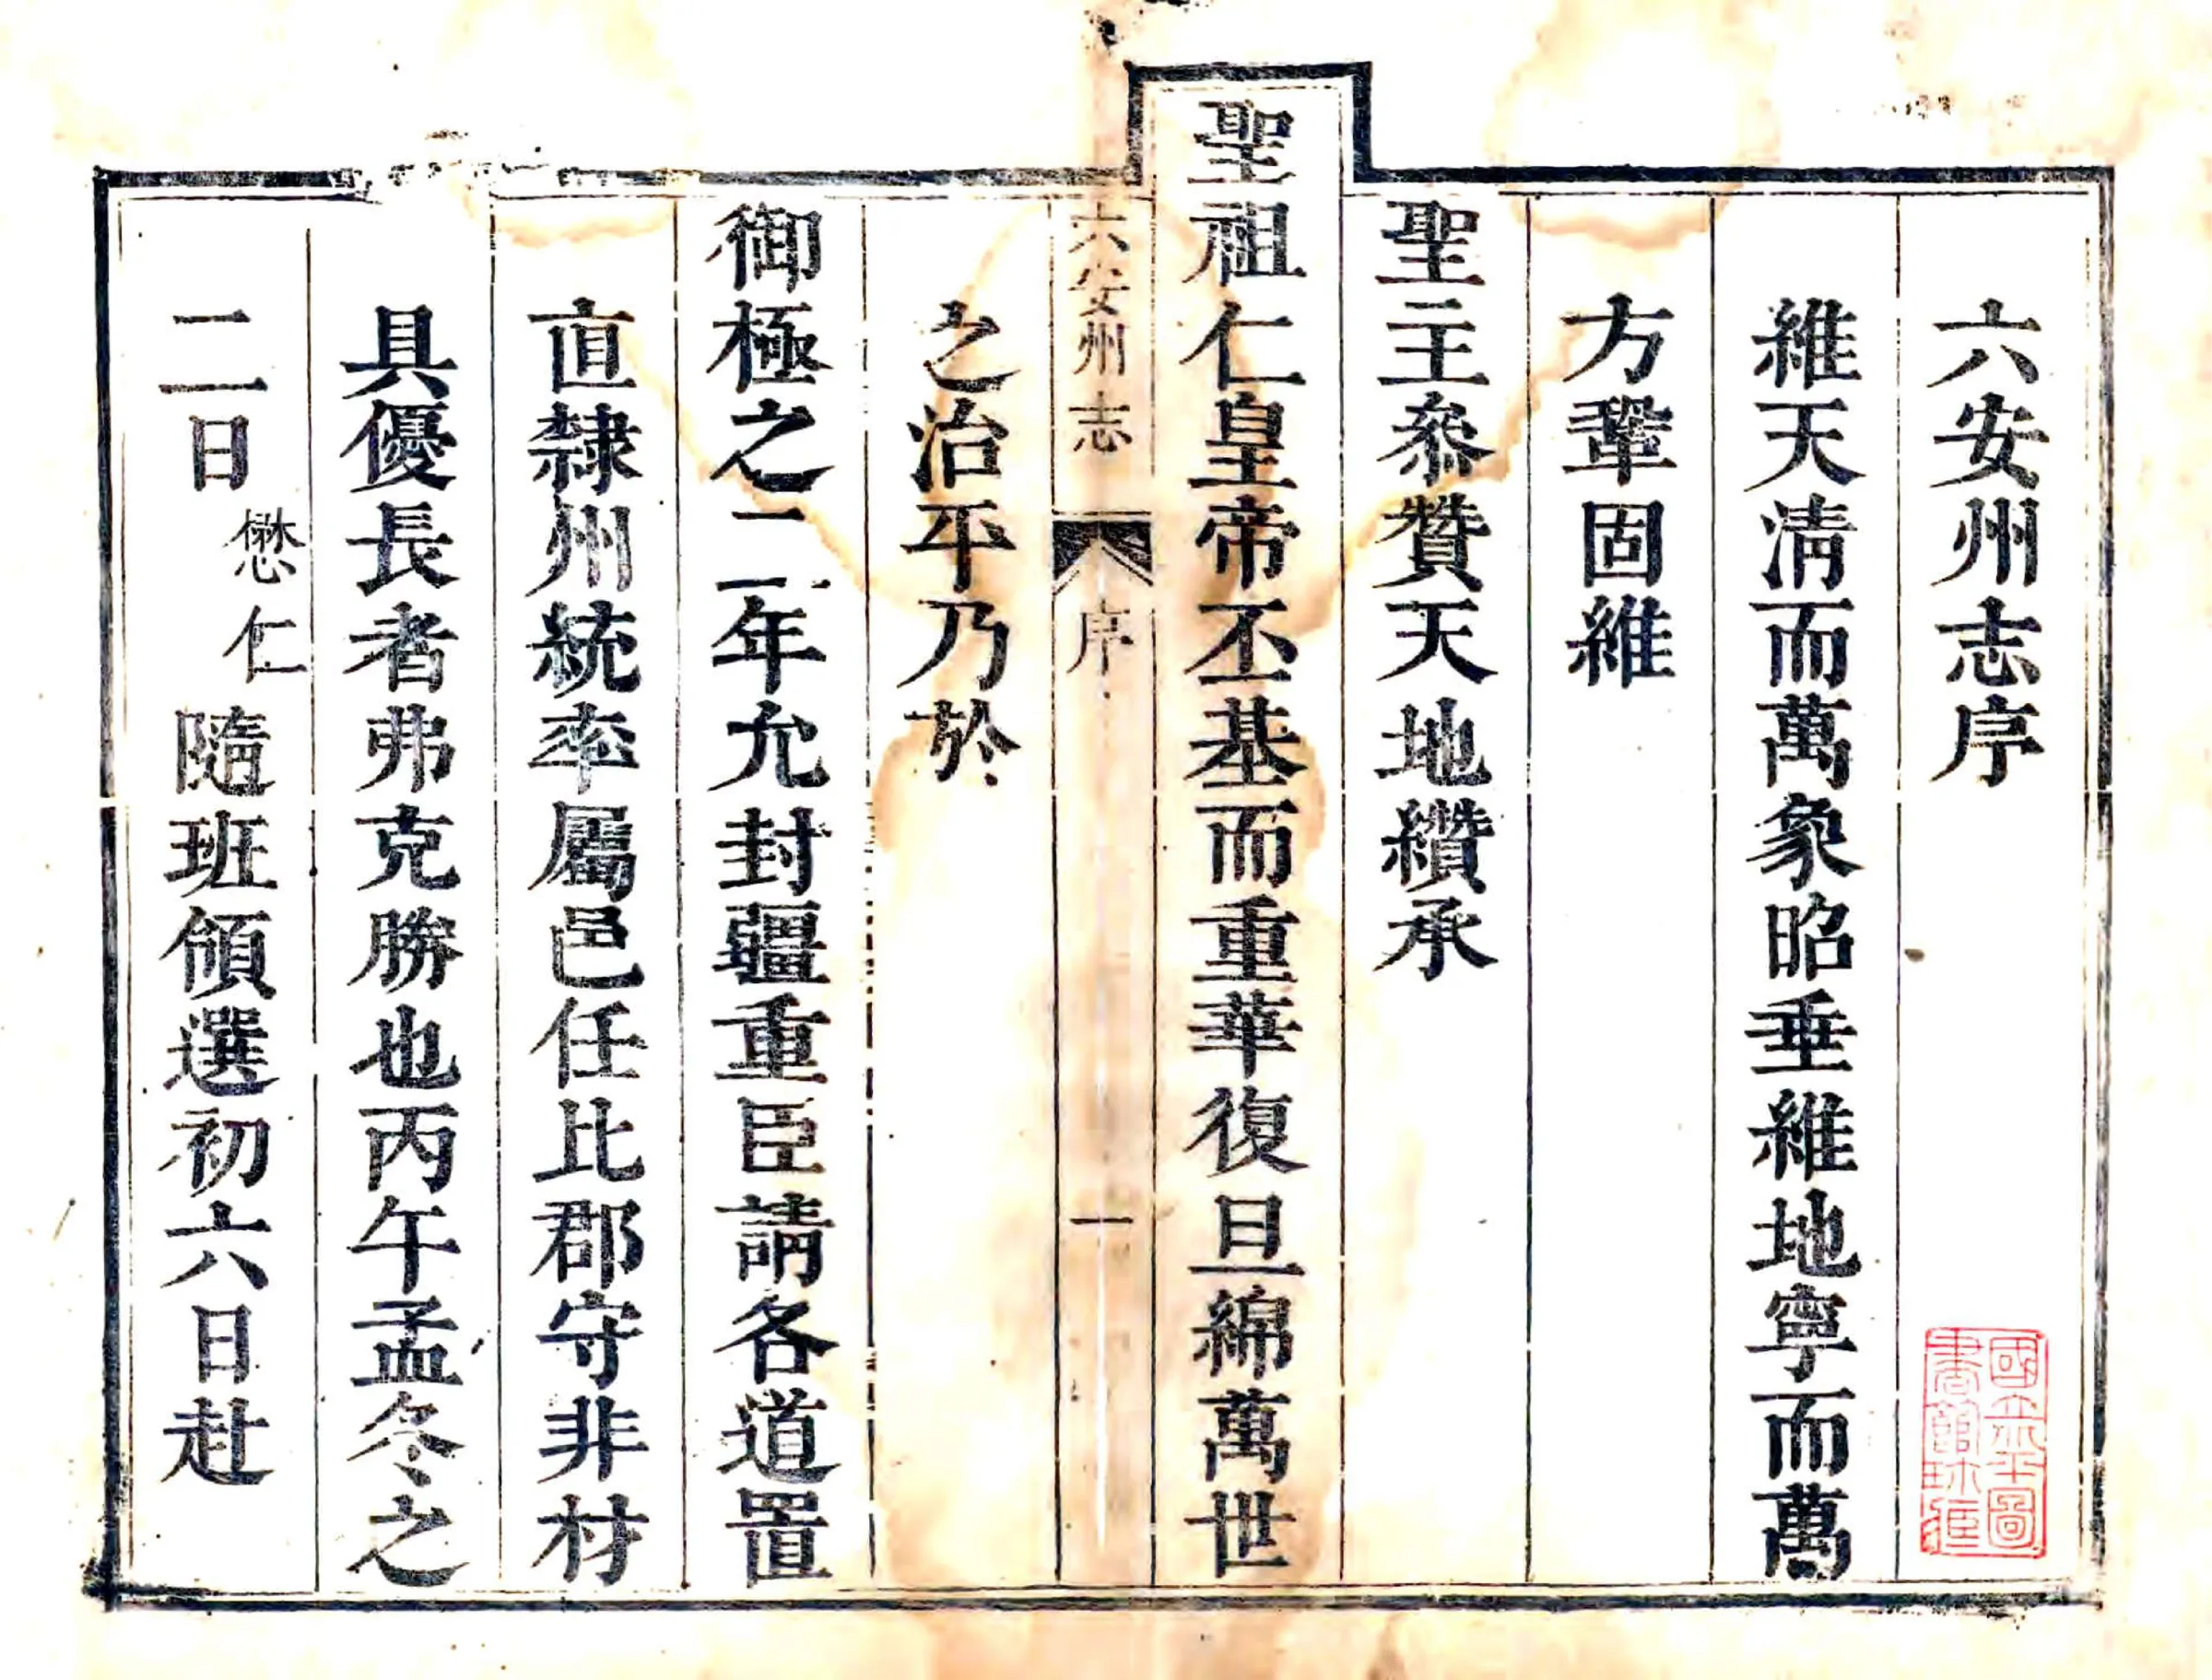 六安州志序
維天清而萬象昭垂維地寧而萬
方鞏固維
聖主叅贊天地纘承
聖祖仁皇帝丕基而重華復旦綿萬世
六安州志 序 一
之治平乃於
御極之二年允封疆重臣請各道置
直隸州統率屬邑任比郡守非材
具優長者弗克勝也丙午孟冬之
二日懋仁隨班頎選初六日赴
國立北平圖書館珍藏